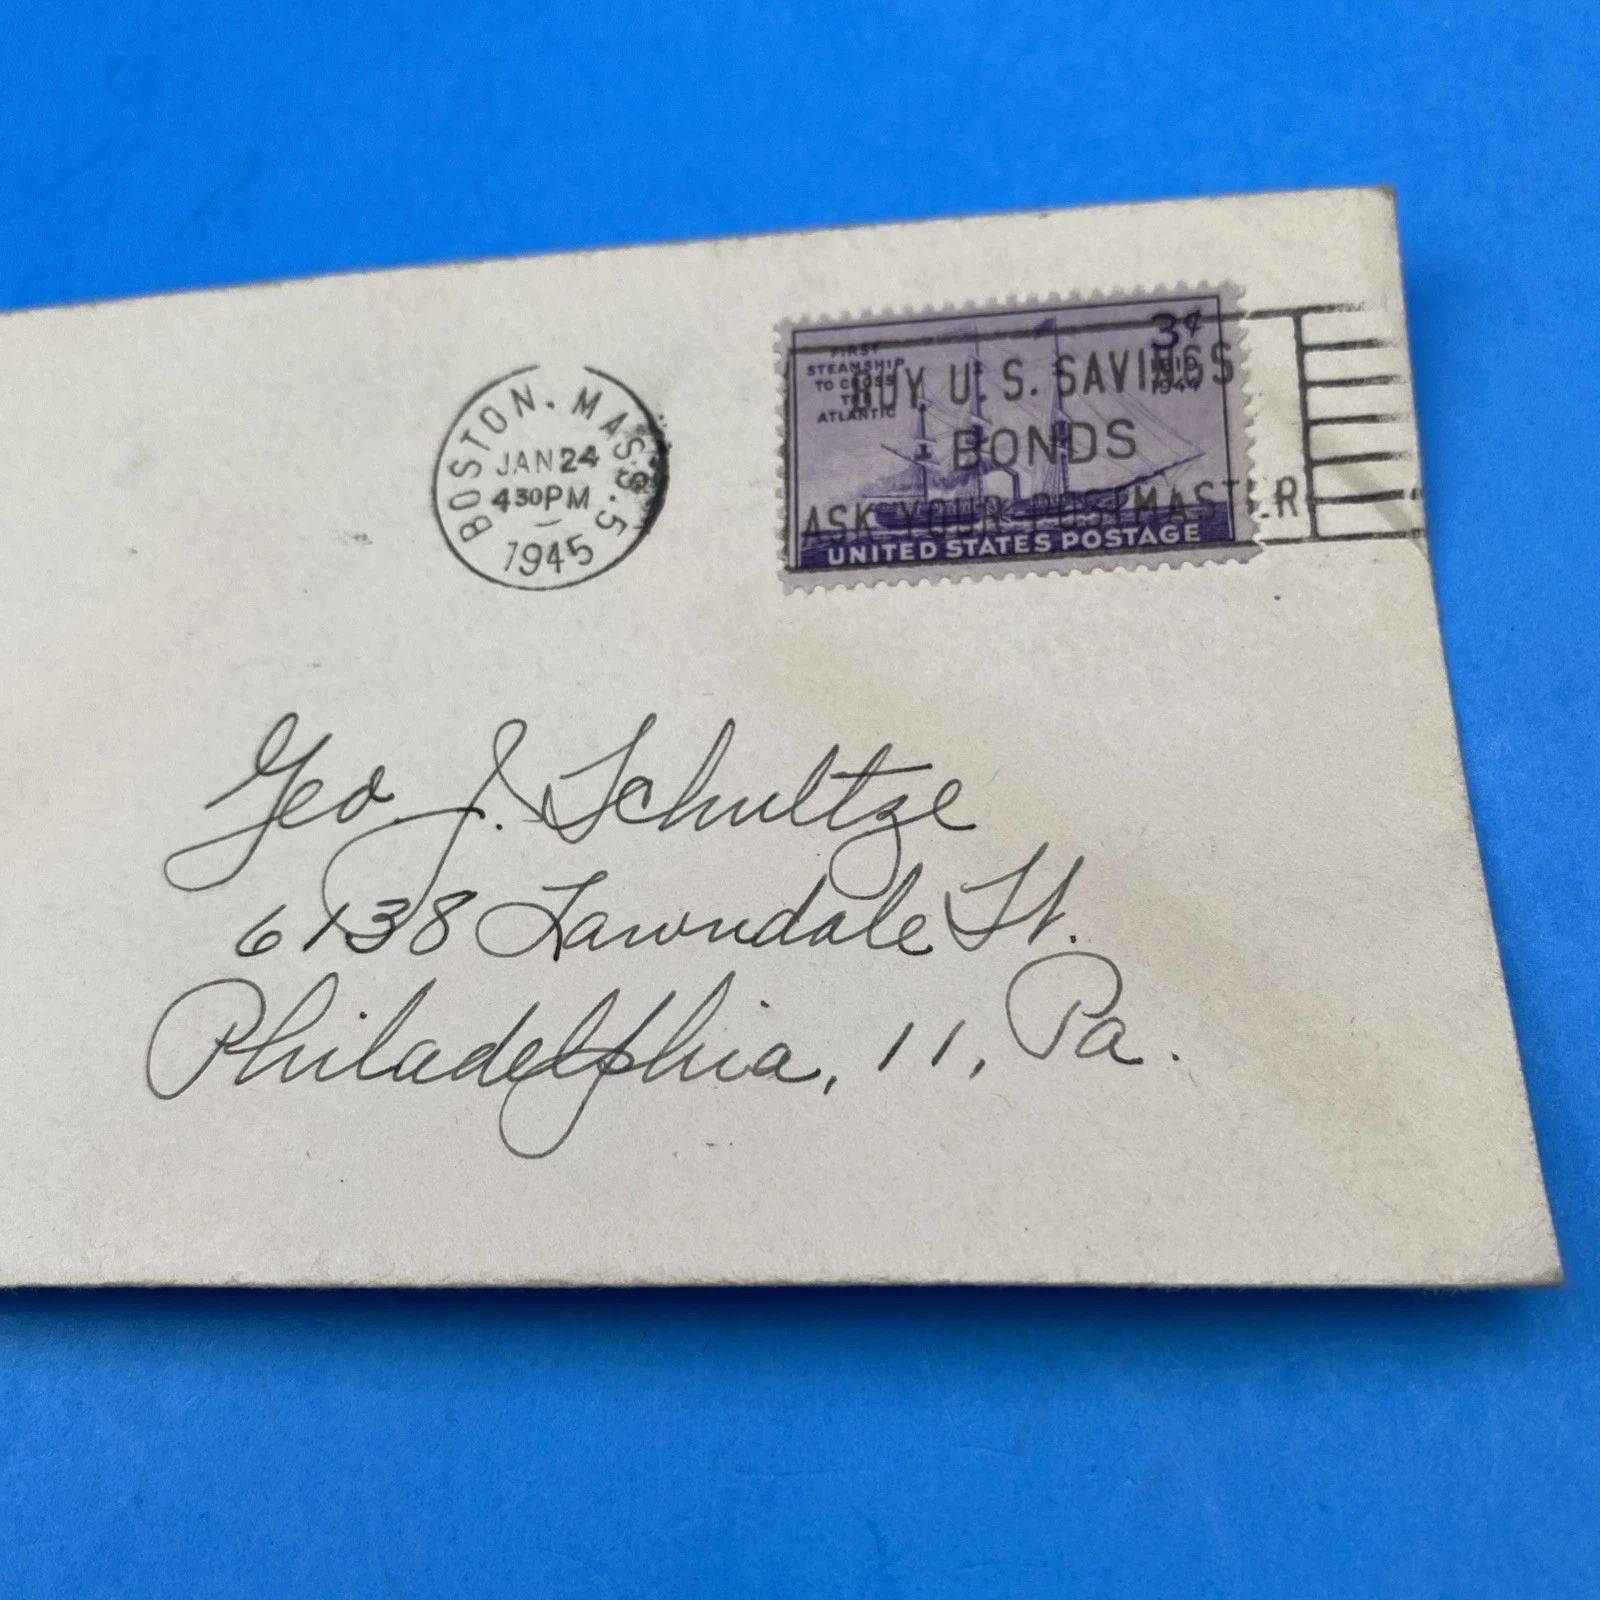 BOSTON. MASS. 5
JAN 24
430PM
1945
FIRST
STEAMSHIP
TO CROSS
THE
ATLANTIC
3¢
1819
1944
UNITED STATES POSTAGE
BUY U.S. SAVINGS
BONDS
ASK YOUR POSTMASTER
Geo. J. Schultze
6138 Lawndale St.
Philadelphia, 11, Pa.